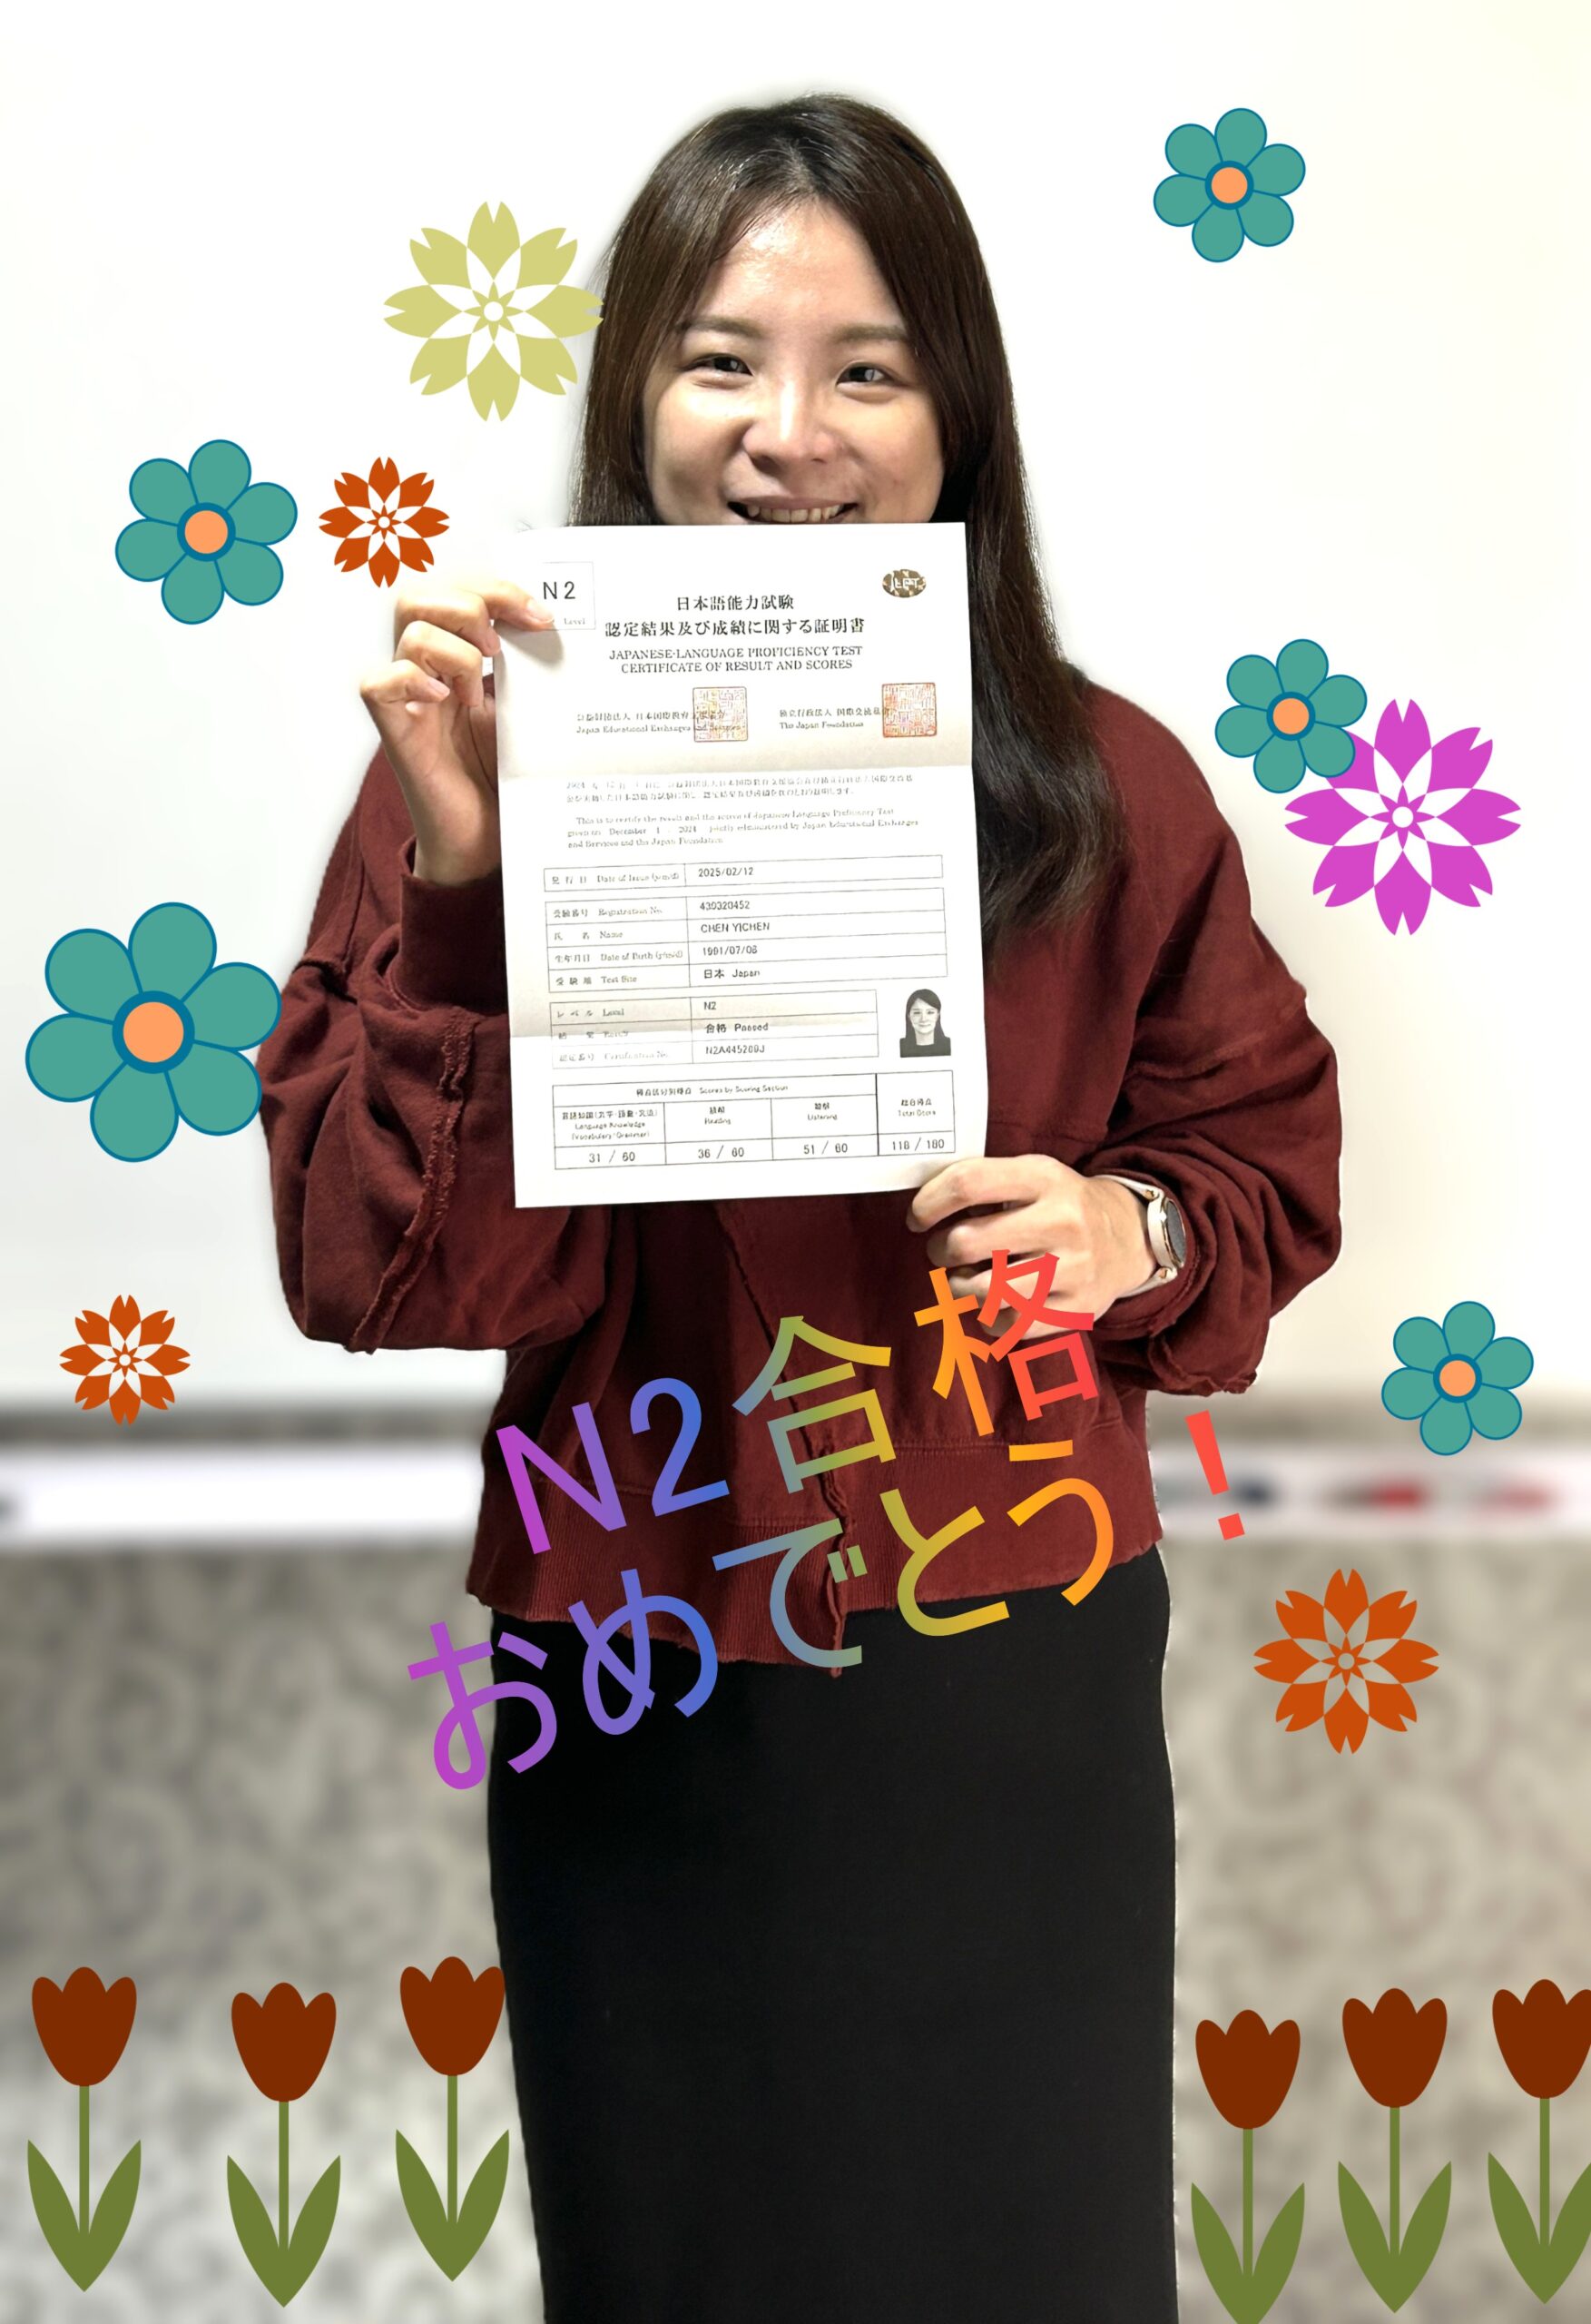 N2
Level
日本語能力試験
認定結果及び成績に関する証明書
JAPANESE-LANGUAGE PROFICIENCY TEST
CERTIFICATE OF RESULT AND SCORES
公益財団法人 日本国際教育支援協会
Japan Educational Exchanges and Services
独立行政法人 国際交流基金
The Japan Foundation
This is to certify the result and the scores of Japanese-Language Proficiency Test
given on December 1, 2024, jointly administered by Japan Educational Exchanges
and Services and the Japan Foundation.
発行日 Date of Issue (y/m/d) 2025/02/12
受験番号 Registration No.
氏 名 Name CHEN YICHEN
生年月日 Date of Birth (y/m/d) 1991/07/08
受験地 Test Site 日本 Japan
レベル Level N2
結 果 Result 合格 Passed
認定番号 Certification No.
得点区分別得点 Scores by Scoring Section
言語知識(文字・語彙・文法) 読解 聴解 総合得点
Language Knowledge Reading Listening Total Score
(Vocabulary/Grammar)
31 / 60 36 / 60 51 / 60 118 / 180
N2合格
おめでとう!